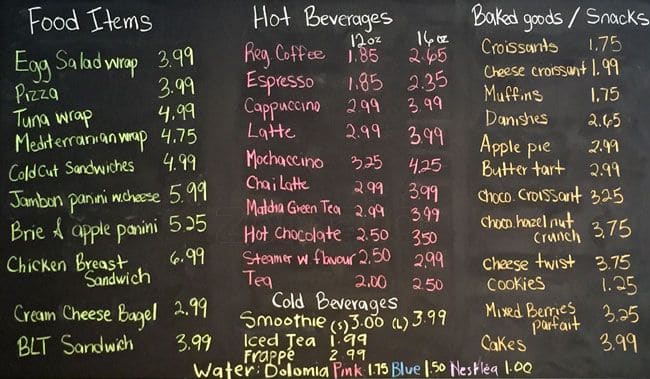 Food Items
Egg Salad wrap 3.99
Pizza 3.99
Tuna wrap 4.99
Mediterranean wrap 4.75
Cold Cut Sandwiches 4.99
Jambon panini w.cheese 5.99
Brie & apple panini 5.25
Chicken Breast 6.99
Sandwich
Cream Cheese Bagel 2.99
BLT Sandwich 3.99
Hot Beverages
12oz 16oz
Reg Coffee 1.85 2.65
Espresso 1.85 2.35
Cappuccino 2.99 3.99
Latte 2.99 3.99
Mochaccino 3.25 4.25
Chai Latte 2.99 3.99
Matcha Green Tea 2.99 3.99
Hot Chocolate 2.50 3.50
Steamer w flavour 2.50 2.99
Tea 2.00 2.50
Cold Beverages
Smoothie (S) 3.00 (L) 3.99
Iced Tea 1.99
Frappe 2.99
Baked goods / Snacks
Croissants 1.75
Cheese croissant 1.99
Muffins 1.75
Danishes 2.65
Apple pie 2.99
Butter tart 2.99
choco. Croissant 3.25
choco.hazel nut
crunch 3.75
Cheese twist 3.75
Cookies 1.25
Mixed Berries 3.25
parfait
Cakes 3.99
Water: Dolomia Pink 1.75 Blue 1.50 Nestlea 1.00